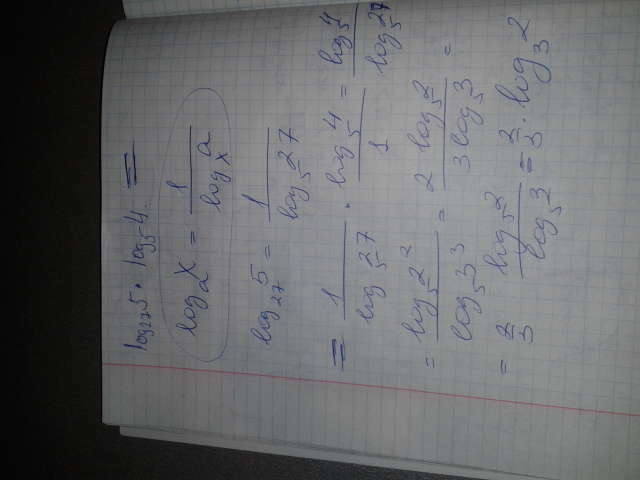 log₂₇5 · log₅4 =
logₐx = 1/logₓa
log₂₇5 = 1/log₅27
= 1/log₅27 · log₅4/1 = log₅4/log₅27
= log₅2²/log₅3³ = 2 log₅2/3 log₅3 =
= 2/3 log₅2/log₅3 = 2/3 · log₃2